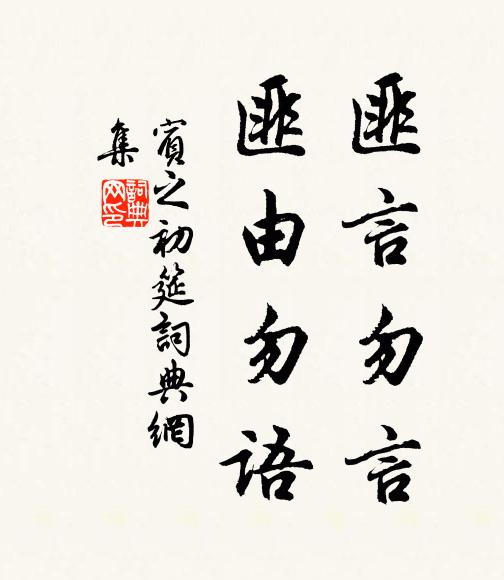 匪言勿言
匪由勿语
賓之初筵詞典網
集
詞典
网印